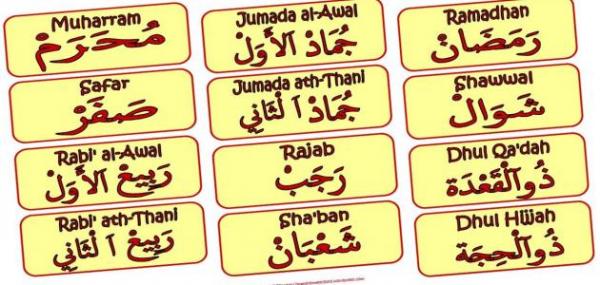 Muharram
مُحَرَمْ
Safar
صَفَرْ
Rabi' al-Awal
رَبِيعْ الأَوَلْ
Rabi' ath-Thani
رَبِيعْ اَلْثَانِي
Jumada al-Awal
جُمَادْ الأَوَلْ
Jumada ath-Thani
جُمَادْ اَلْثَانِي
Rajab
رَجَبْ
Sha'ban
شَعْبَانْ
Ramadhan
رَمَضَانْ
Shawwal
شَوَالْ
Dhul Qa'dah
ذُوالْقَعْدَة
Dhul Hijjah
ذُوالْحِجَة